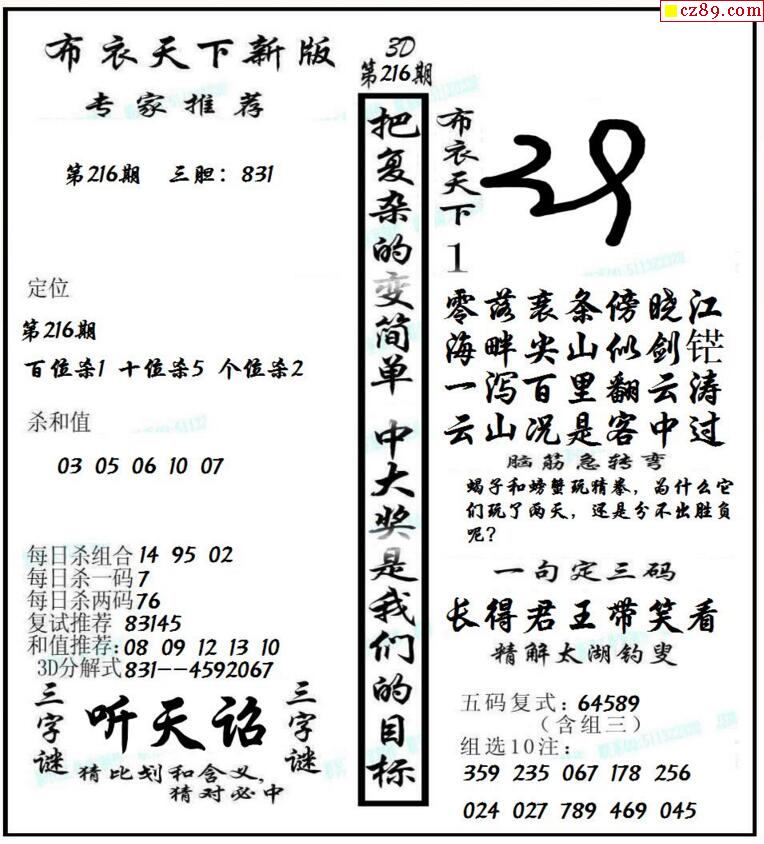 cz89.com
布衣天下新版
专家推荐
第216期 三胆：831
定位
第216期
百位杀1 十位杀5 个位杀2
杀和值
03 05 06 10 07
每日杀组合14 95 02
每日杀一码7
每日杀两码76
复试推荐 83145
和值推荐:08 09 12 13 10
3D分解式831--4592067
三字谜
听天诏
三字谜
猜比划和含义，
猜对必中
3D
第216期
把复杂的变简单 中大奖是我们的目标
布衣天下
1
零落衰条傍晓江
海畔尖山似剑铓
一泻百里翻云涛
云山况是客中过
脑筋急转弯
蝎子和螃蟹玩猜拳，为什么它
们玩了两天，还是分不出胜负
呢？
一句定三码
长得君王带笑看
精解太湖钓叟
五码复式：64589
（含组三）
组选10注：
359 235 067 178 256
024 027 789 469 045